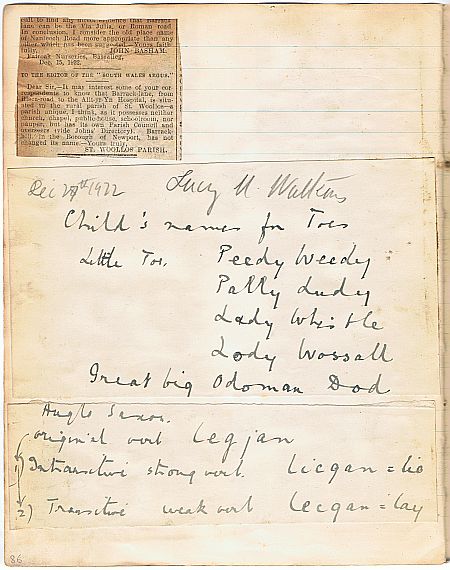 call to find any more evidence that Barrack-
lane can be the Via Julia, or Roman road
In conclusion, I consider the old place name
of Nantcoch Road more appropriate than any
other which has been suggested.—Yours faith-
fully, JOHN BASHAM.
Fairoak Nurseries, Bassaleg,
Dec. 15, 1922.
TO THE EDITOR OF THE "SOUTH WALES ARGUS."
Dear Sir,—It may interest some of your cor-
respondents to know that Barrack-lane, from
road to the Allt-yr-Yn Hospital, is situ-
ated in the rural parish of St. Woollos—a
parish unique, I think, as it possesses neither
church, chapel, public-house, schoolroom, nor
pauper, but has its own Parish Council and
overseers (vide Johns' Directory). Barrack-
hill, in the Borough of Newport, has not
changed its name.—Yours truly,
ST. WOOLLOS PARISH.
Dec 27th 1922 Lucy M. Watkins
Child's names for Toes
Little Toe. Peedy Weedy
Pally Ludy
Lady Whistle
Lody Wossall
Great big Odoman Dod
Anglo Saxon.
original verb Legjan
1) Intransitive strong verb. Licgan = lie
2) Transitive weak verb Lecgan = lay
86